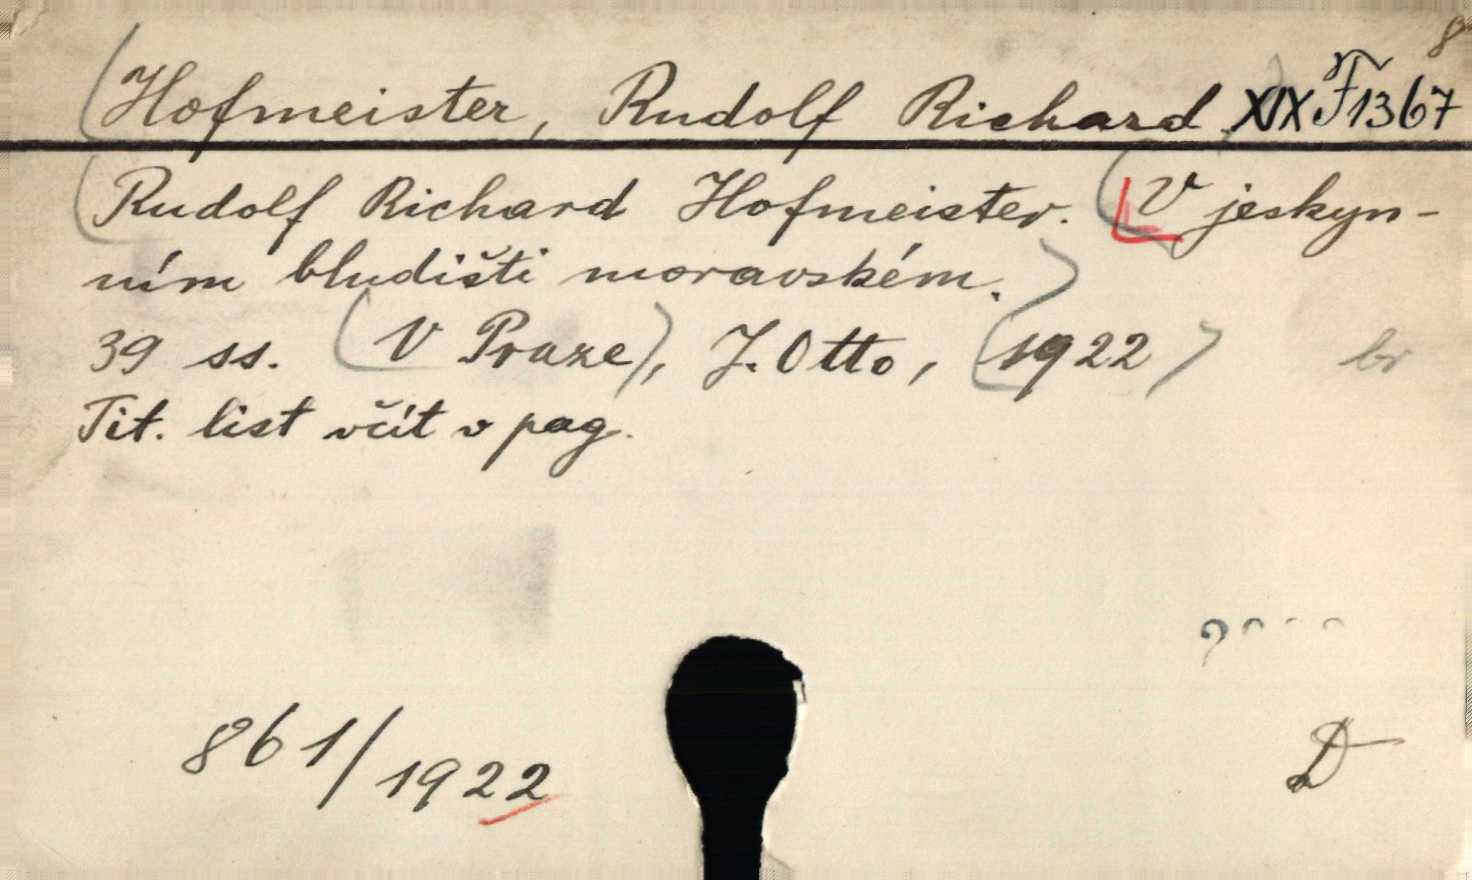 8
Hofmeister, Rudolf Richard XIX F 1367
Rudolf Richard Hofmeister. V jeskyn-
ním bludišti moravském.
39 ss. (V Praze), J. Otto, (1922)
br
Tit. list včít v pag.
861/1922
D